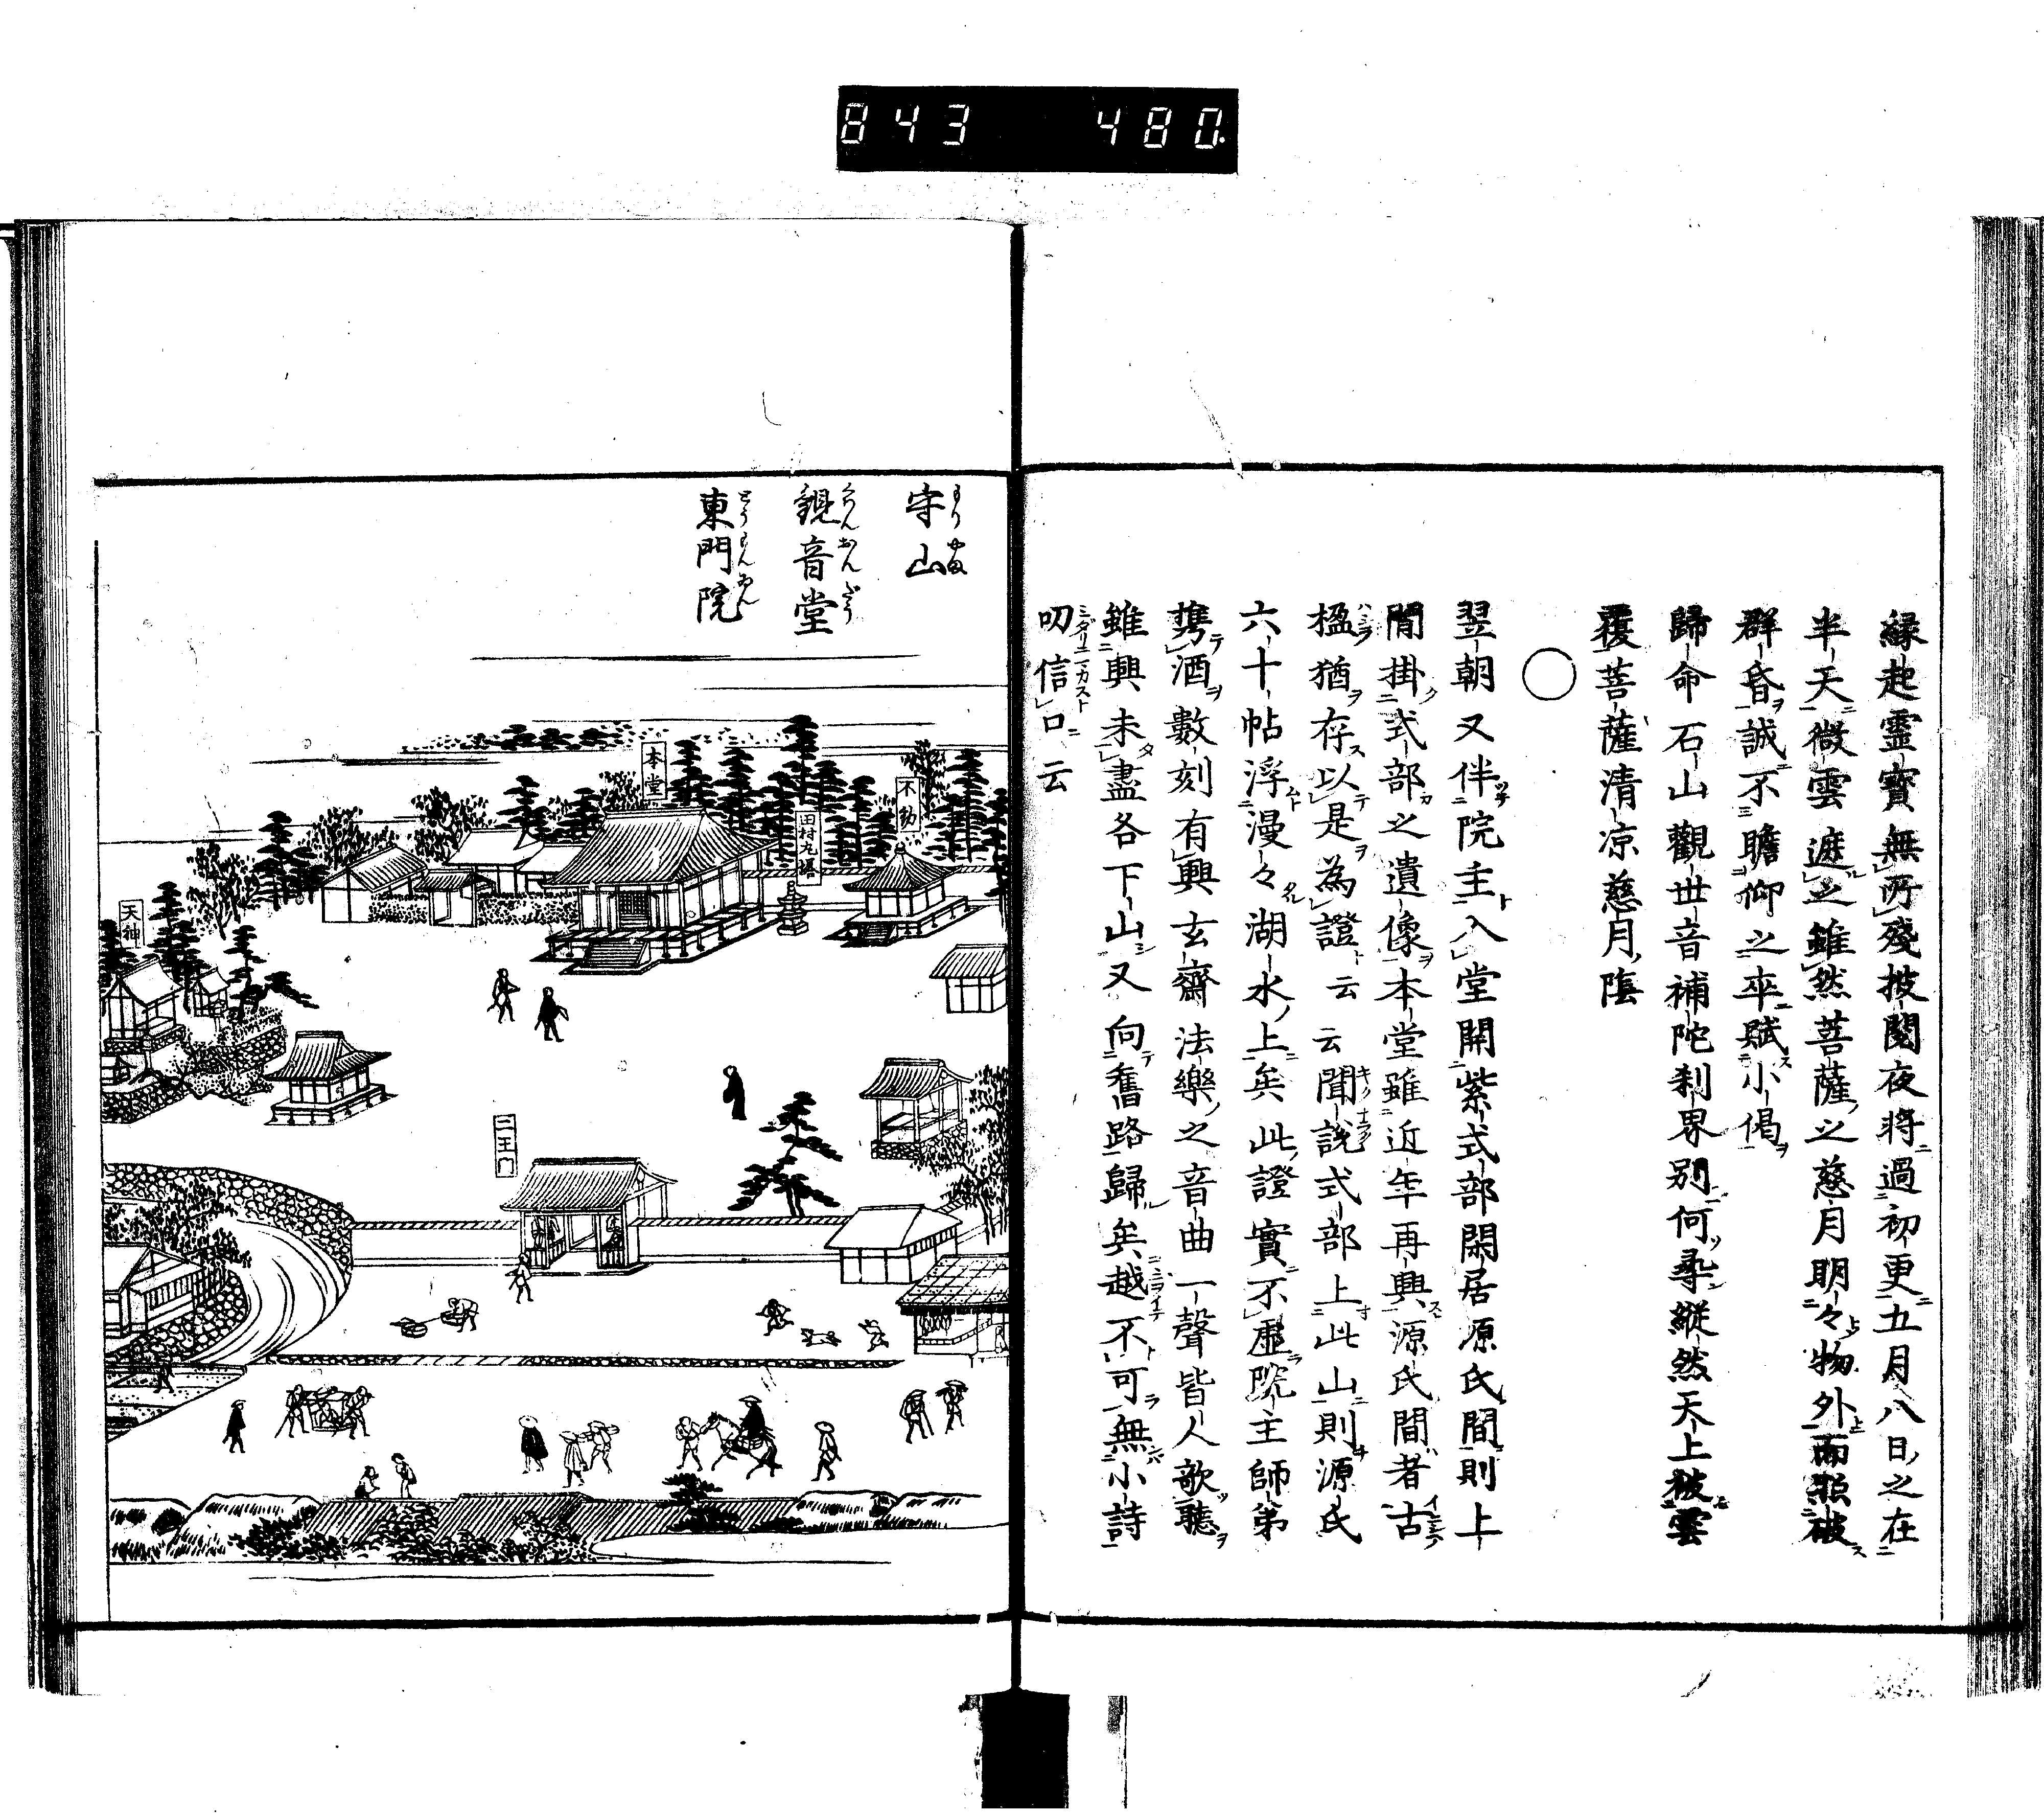 843 480
緣起靈寶無所殘披閱夜將過初更五月八日之在
半天微雲遮之雖然菩薩之慈月明々物外而照破
群昏誠不瞻仰之卒賦小偈
歸命石山觀世音補陀刹界別何尋縱然天上被雲
覆菩薩清凉慈月陰
〇
翌朝又伴院主入堂開紫式部閑居源氏間則上
間掛式部之遺像本堂雖近年再興源氏間者古
楹猶存以是為證云云聞說式部上此山則源氏
六十帖浮漫々湖水上矣此證實不虛院主師弟
携酒數刻有興玄齋法樂之音曲一聲皆人歌聽
雖興未盡各下山又向舊路歸矣越不可無小詩
叨信口云
守山
もりやま
觀音堂
くわんおんだう
東門院
とうもんゐん
本堂
不動
田村丸塔
天神
二王門